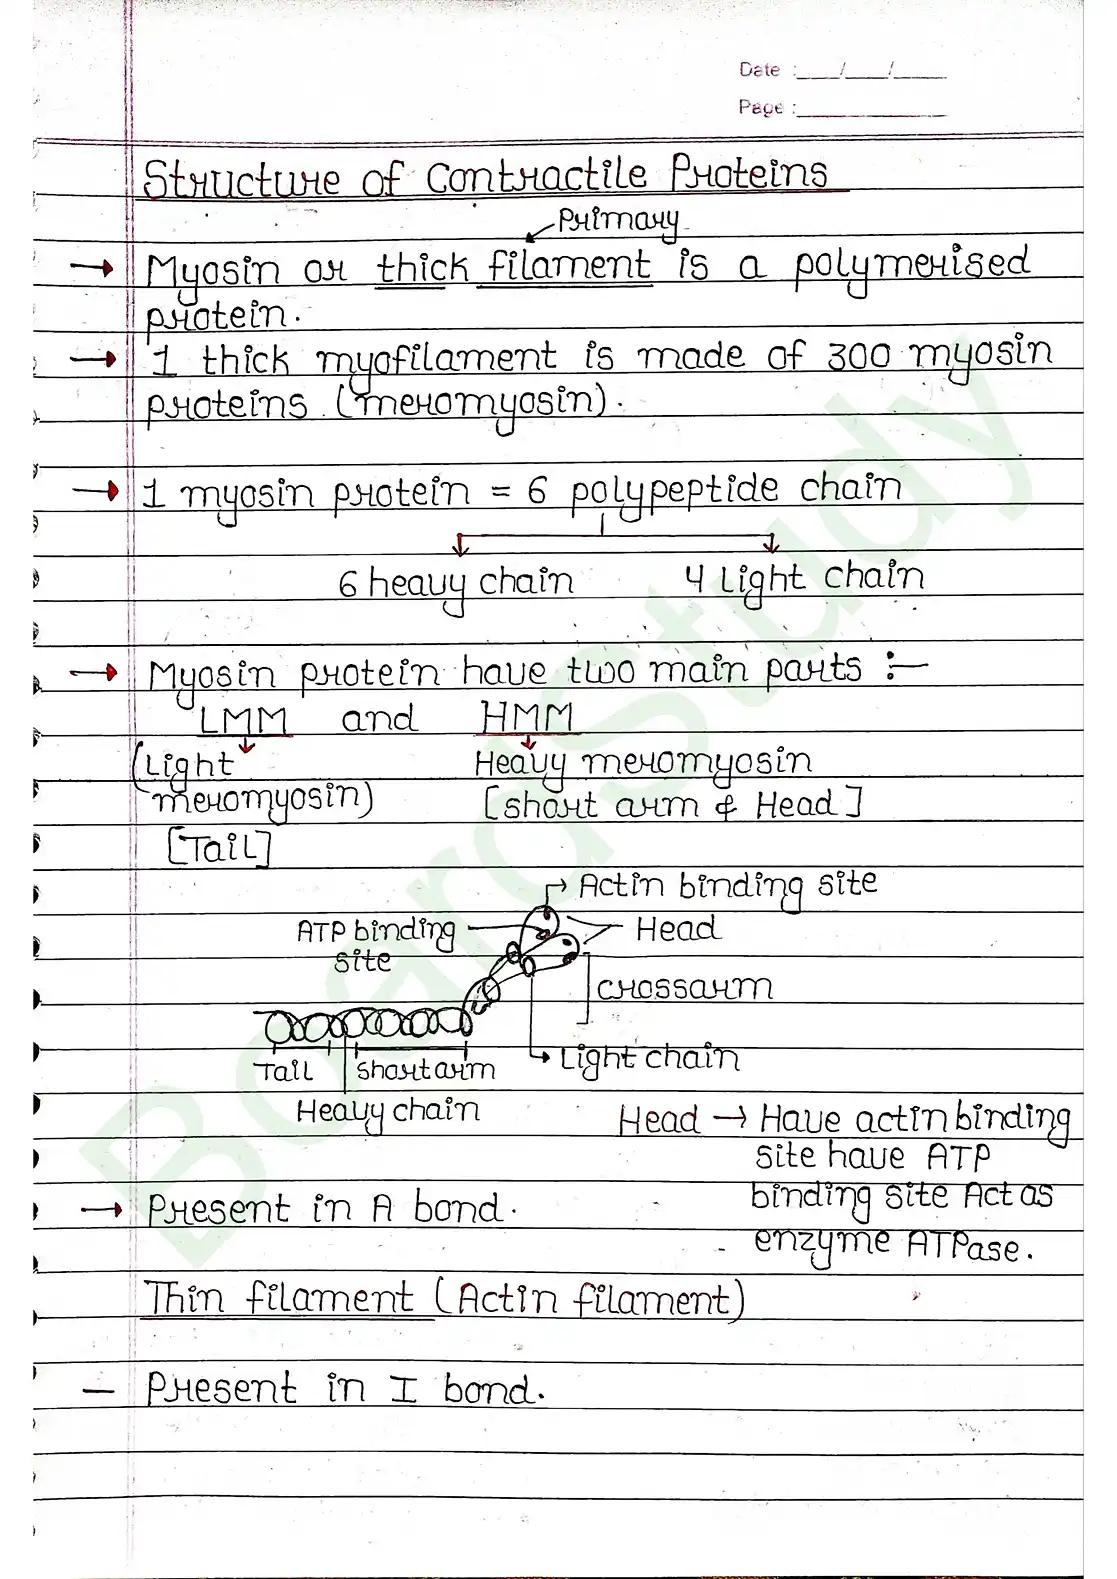 Date : ___/___/____
Page : ____________
Structure of Contractile Proteins
Primary
→ Myosin or thick filament is a polymerised
protein.
→ 1 thick myofilament is made of 300 myosin
proteins (meromyosin).
→ 1 myosin protein = 6 polypeptide chain
6 heavy chain 4 Light chain
→ Myosin protein have two main parts :-
LMM and HMM
(Light Heavy meromyosin
meromyosin) [short arm & Head]
[Tail]
→ Actin binding site
ATP binding Head
site
crossarm
Tail short arm → Light chain
Heavy chain
Head → Have actin binding
site have ATP
→ Present in A bond. binding site Act as
enzyme ATPase.
Thin filament (Actin filament)
— Present in I bond.
BoardStudy